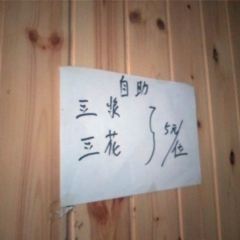 自助
三浆
三花
5元/位